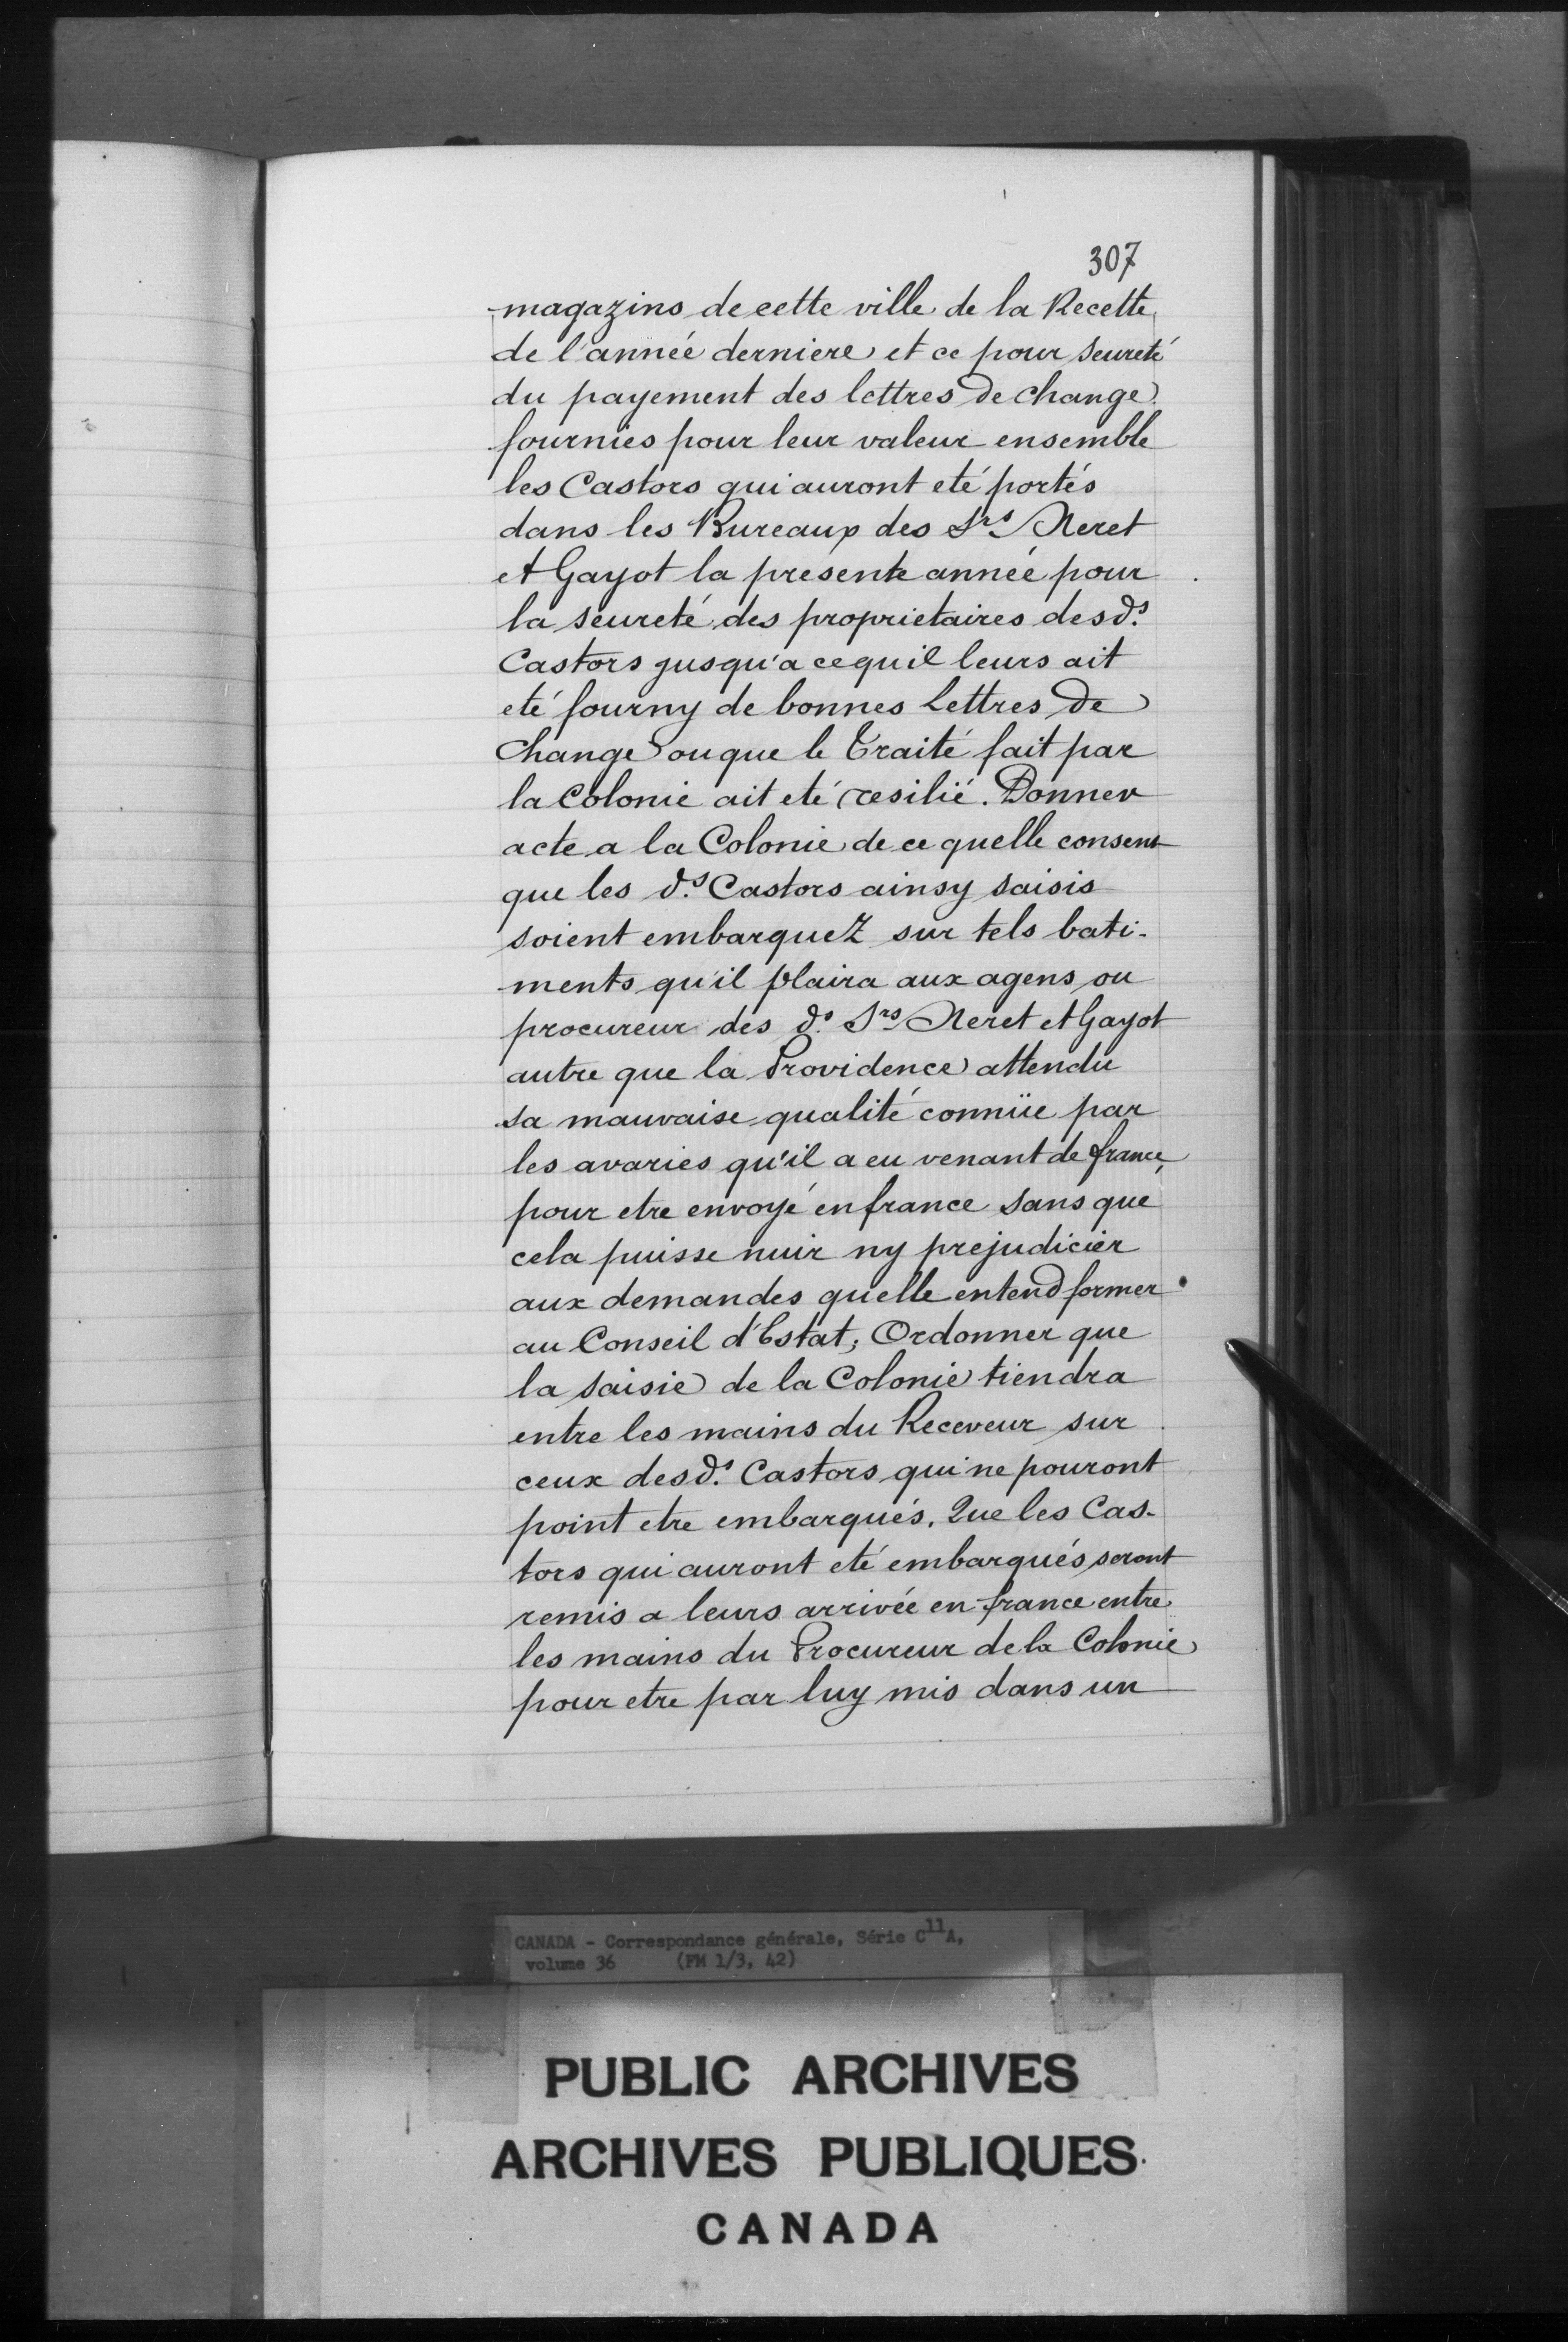 307
magazins de cette ville de la Recette
de l'année derniere et ce pour seureté
du payement des lettres de change
fournies pour leur valeur ensemble
les Castors qui auront eté portés
dans les Bureaux des Srs Neret
et Gayot la presente année pour
la seureté des proprietaires desds
Castors jusqu'a cequil leurs ait
eté fourny de bonnes Lettres de
change ou que le Traité fait par
la Colonie ait eté resilié. Donner
acte a la Colonie de ce quelle consent
que les ds Castors ainsy saisis
soient embarquez sur tels bati-
ments qu'il plaira aux agens ou
procureur des ds Srs Neret et Gayot
autre que la Providence attendu
sa mauvaise qualité connüe par
les avaries qu'il a eu venant de france,
pour etre envoyé en france sans que
cela puisse nuir ny prejudicier
aux demandes quelle entend former
au Conseil d'Estat; Ordonner que
la saisie de la Colonie tiendra
entre les mains du Receveur sur
ceux desds Castors qui ne pouront
point etre embarqués. Que les Cas-
tors qui auront eté embarqués seront
remis a leurs arrivée en france entre
les mains du Procureur de la Colonie
pour etre par luy mis dans un
CANADA - Correspondance générale, Série C11A,
volume 36 (FM 1/3, 42)
PUBLIC ARCHIVES
ARCHIVES PUBLIQUES
CANADA